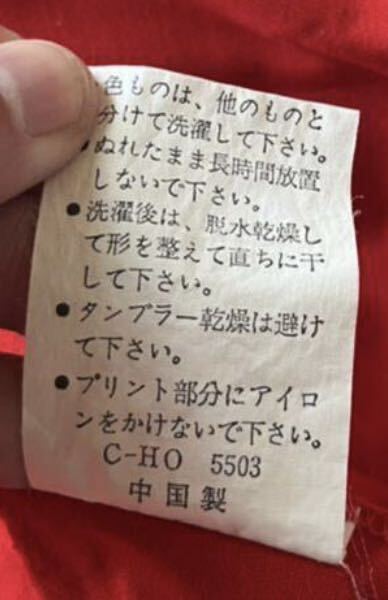 色ものは、他のものと
分けて洗濯して下さい。
●ぬれたまま長時間放置
しないで下さい。
●洗濯後は、脱水乾燥し
て形を整えて直ちに干
して下さい。
●タンブラー乾燥は避け
て下さい。
●プリント部分にアイロ
ンをかけないで下さい。
C-HO 5503
中国製